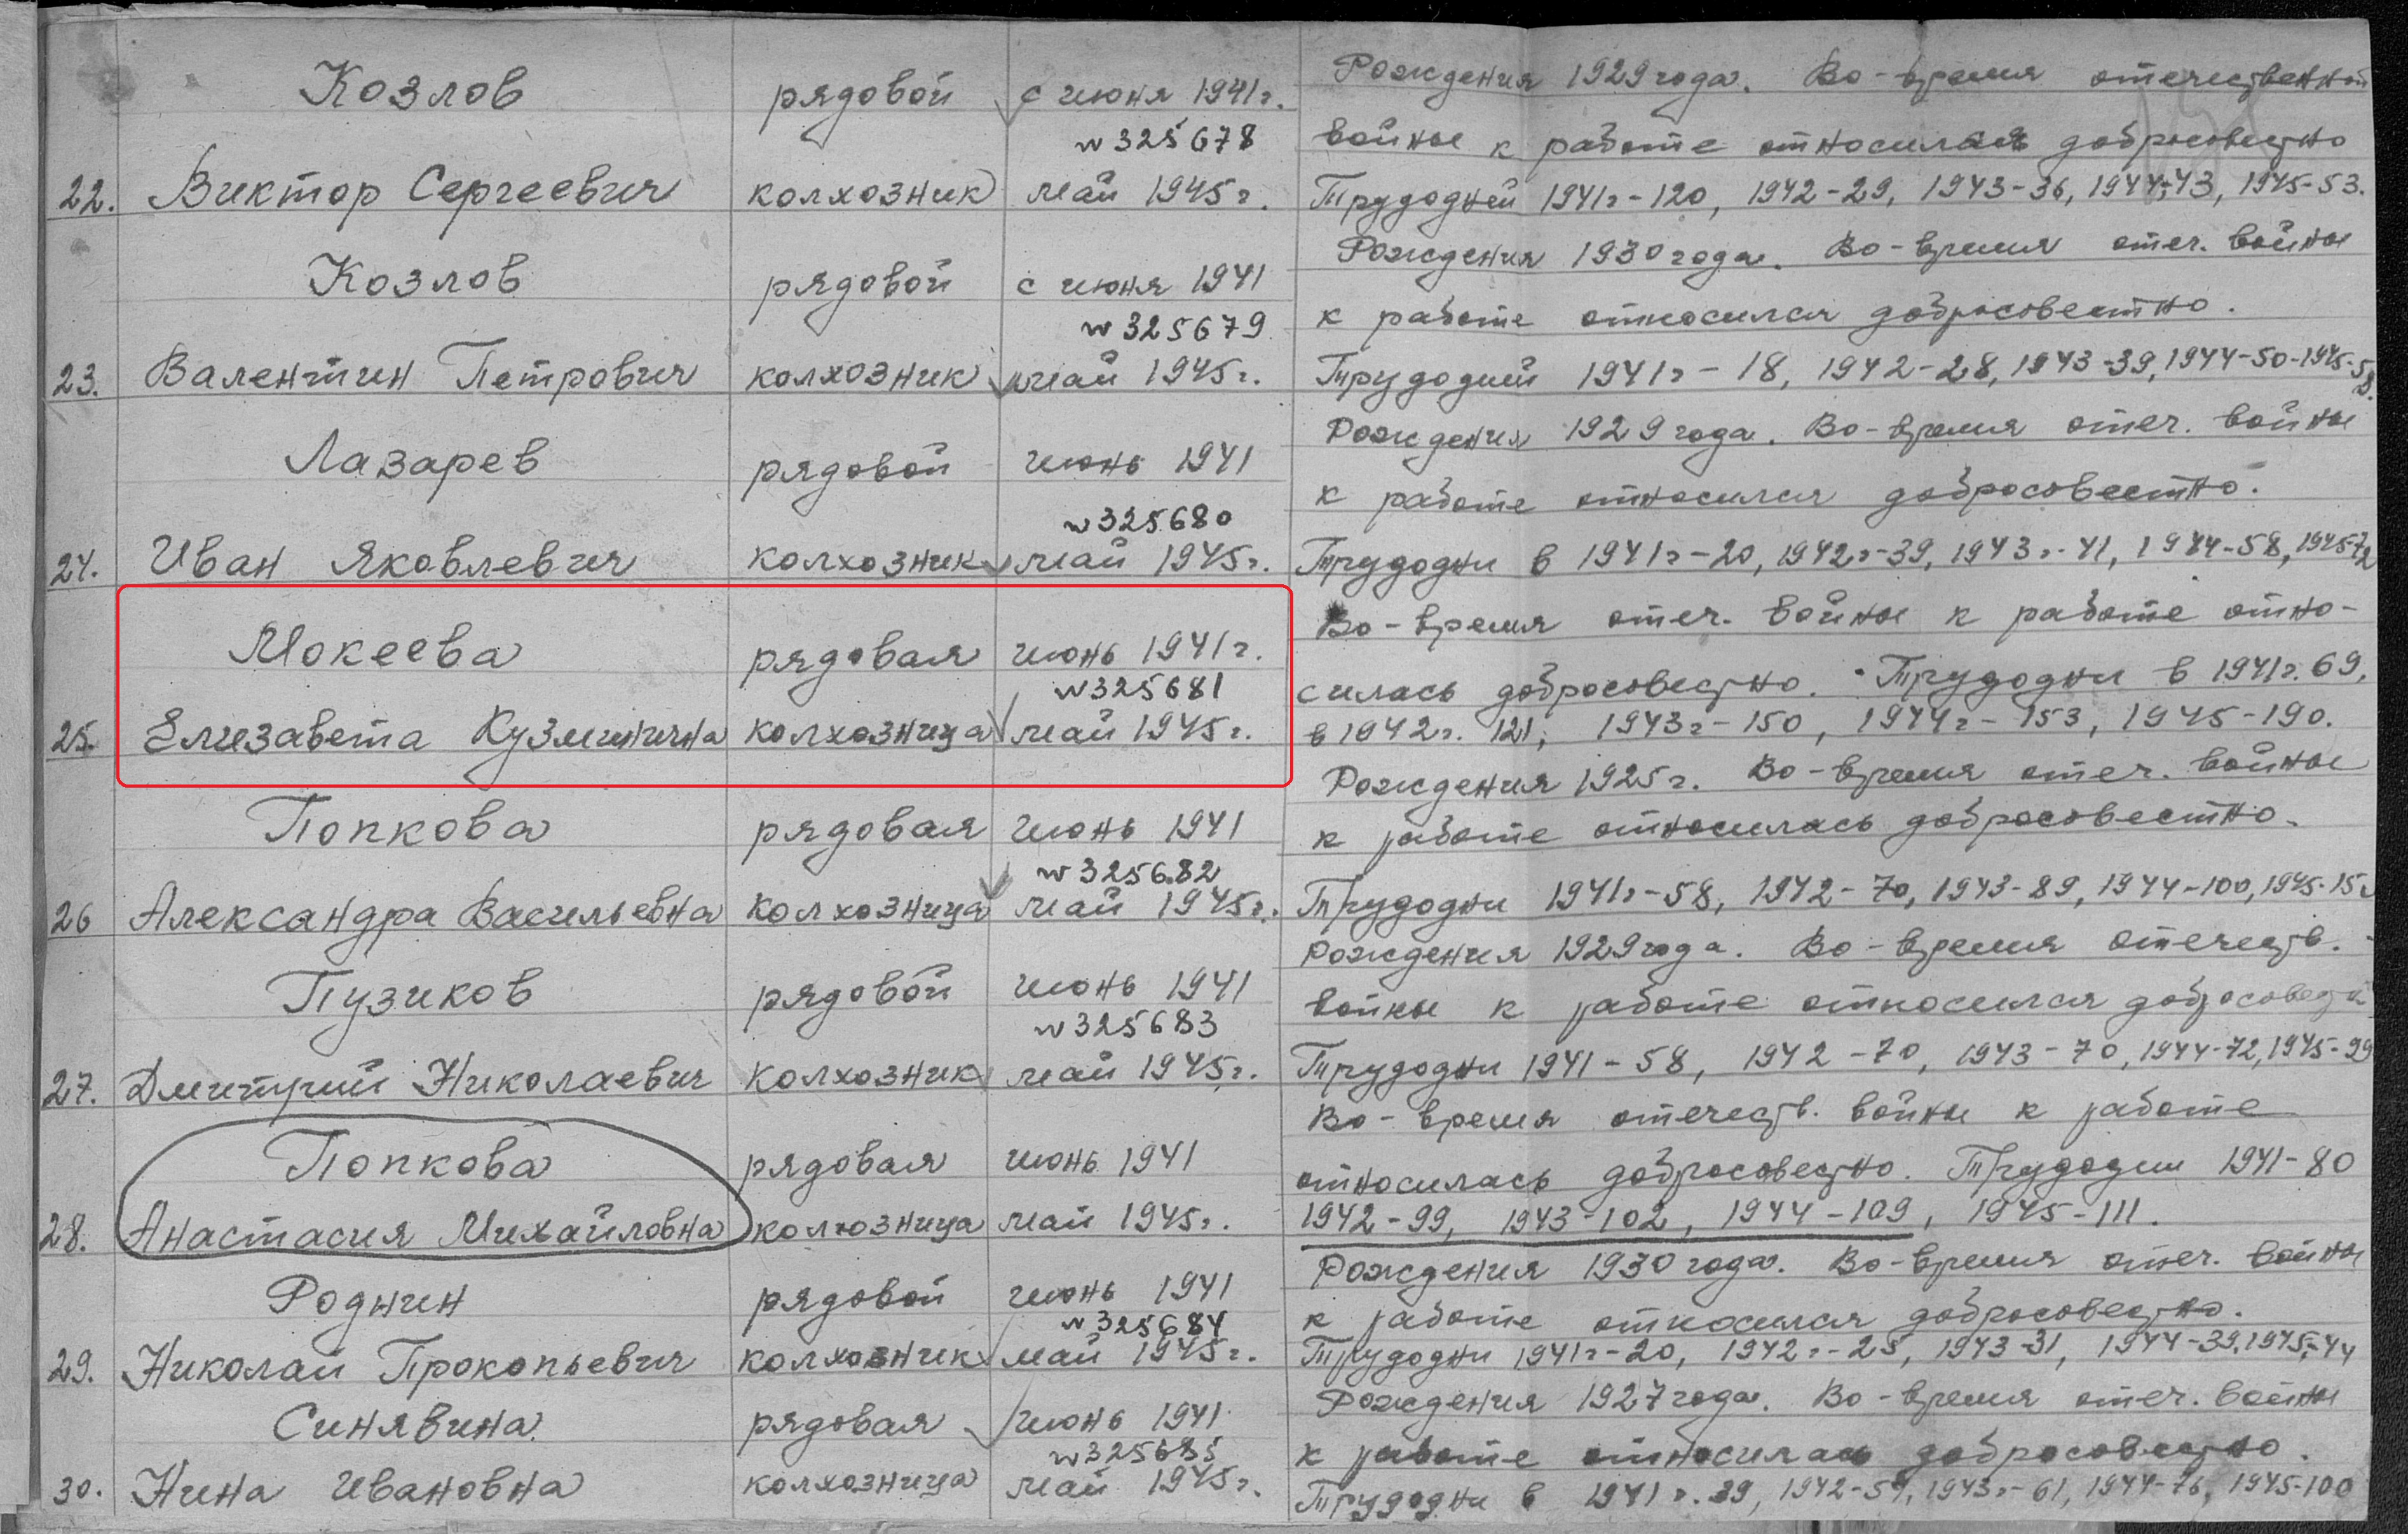 Козлов рядовой с июня 1941г. Рождения 1929 года. Во-время отечественной
w 325678 войны к работе относился добросовестно
22. Виктор Сергеевич колхозник май 1945г. Трудодней 1941г-120, 1942-29, 1943-36, 1944-43, 1945-53.
Козлов рядовой с июня 1941 Рождения 1930 года. Во-время отеч. войны
w 325679 к работе относился добросовестно.
23. Валентин Петрович колхозник май 1945г. Трудодней 1941г-18, 1942-28, 1943-39, 1944-50-1945-58.
Лазарев рядовой июнь 1941 Рождения 1929 года. Во-время отеч. войны
w 325680 к работе относился добросовестно.
24. Иван Яковлевич колхозник май 1945г. Трудодни в 1941г-20, 1942г-39, 1943г-41, 1944-58, 1945-72
Во-время отеч. войны к работе отно-
Мокеева рядовая июнь 1941г.
w 325681 силась добросовестно. Трудодни в 1941г. 69,
25. Елизавета Кузминична колхозница май 1945г. в 1942г. 121, 1943г-150, 1944г-153, 1945-190.
Рождения 1925г. Во-время отеч. войны
Попкова рядовая июнь 1941 к работе относилась добросовестно.
w 325682
26 Александра Васильевна колхозница май 1945г. Трудодни 1941г-58, 1942-70, 1943-89, 1944-100, 1945-15
Рождения 1929 года. Во-время отечеств.
Пузиков рядовой июнь 1941 войны к работе относился
w 325683
27. Дмитрий Николаевич колхозник май 1945г. Трудодни 1941-58, 1942-70, 1943-70, 1944-72, 1945-99
Во-время отечеств. войны к работе
Попкова рядовая июнь 1941 относилась добросовестно. Трудодни 1941-80
28. Анастасия Михайловна колхозница май 1945г. 1942-99, 1943-102, 1944-109, 1945-111.
Рождения 1930 года. Во-время отеч. войны
Роднин рядовой июнь 1941
w 325684 к работе относился добросовестно.
29. Николай Прокопьевич колхозник май 1945г. Трудодни 1941г-20, 1942г-25, 1943-31, 1944-39, 1945-44
Рождения 1927 года. Во-время отеч. войны
Синявина рядовая июнь 1941
w 325685 к работе относилась добросовестно.
30. Нина Ивановна колхозница май 1945г. Трудодни в 1941г. 39, 1942-59, 1943г-61, 1944-76, 1945-100